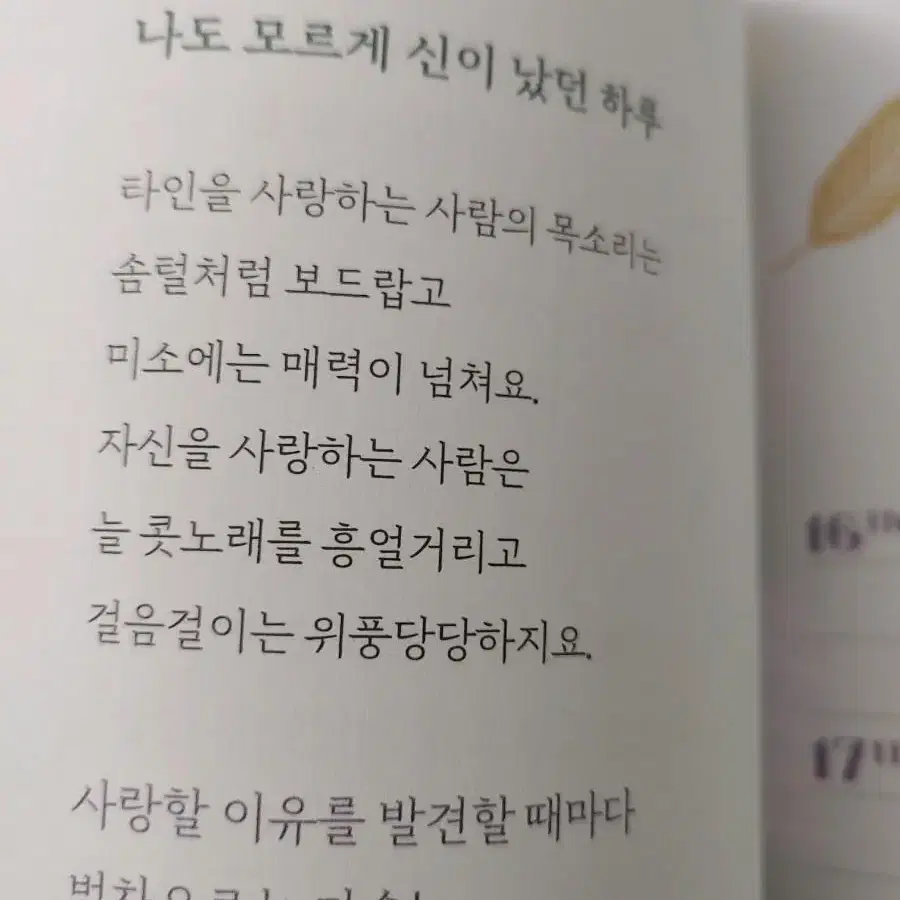 나도 모르게 신이 났던 하루
타인을 사랑하는 사람의 목소리는
솜털처럼 보드랍고
미소에는 매력이 넘쳐요.
자신을 사랑하는 사람은
늘 콧노래를 흥얼거리고
걸음걸이는 위풍당당하지요.
사랑할 이유를 발견할 때마다
16
17